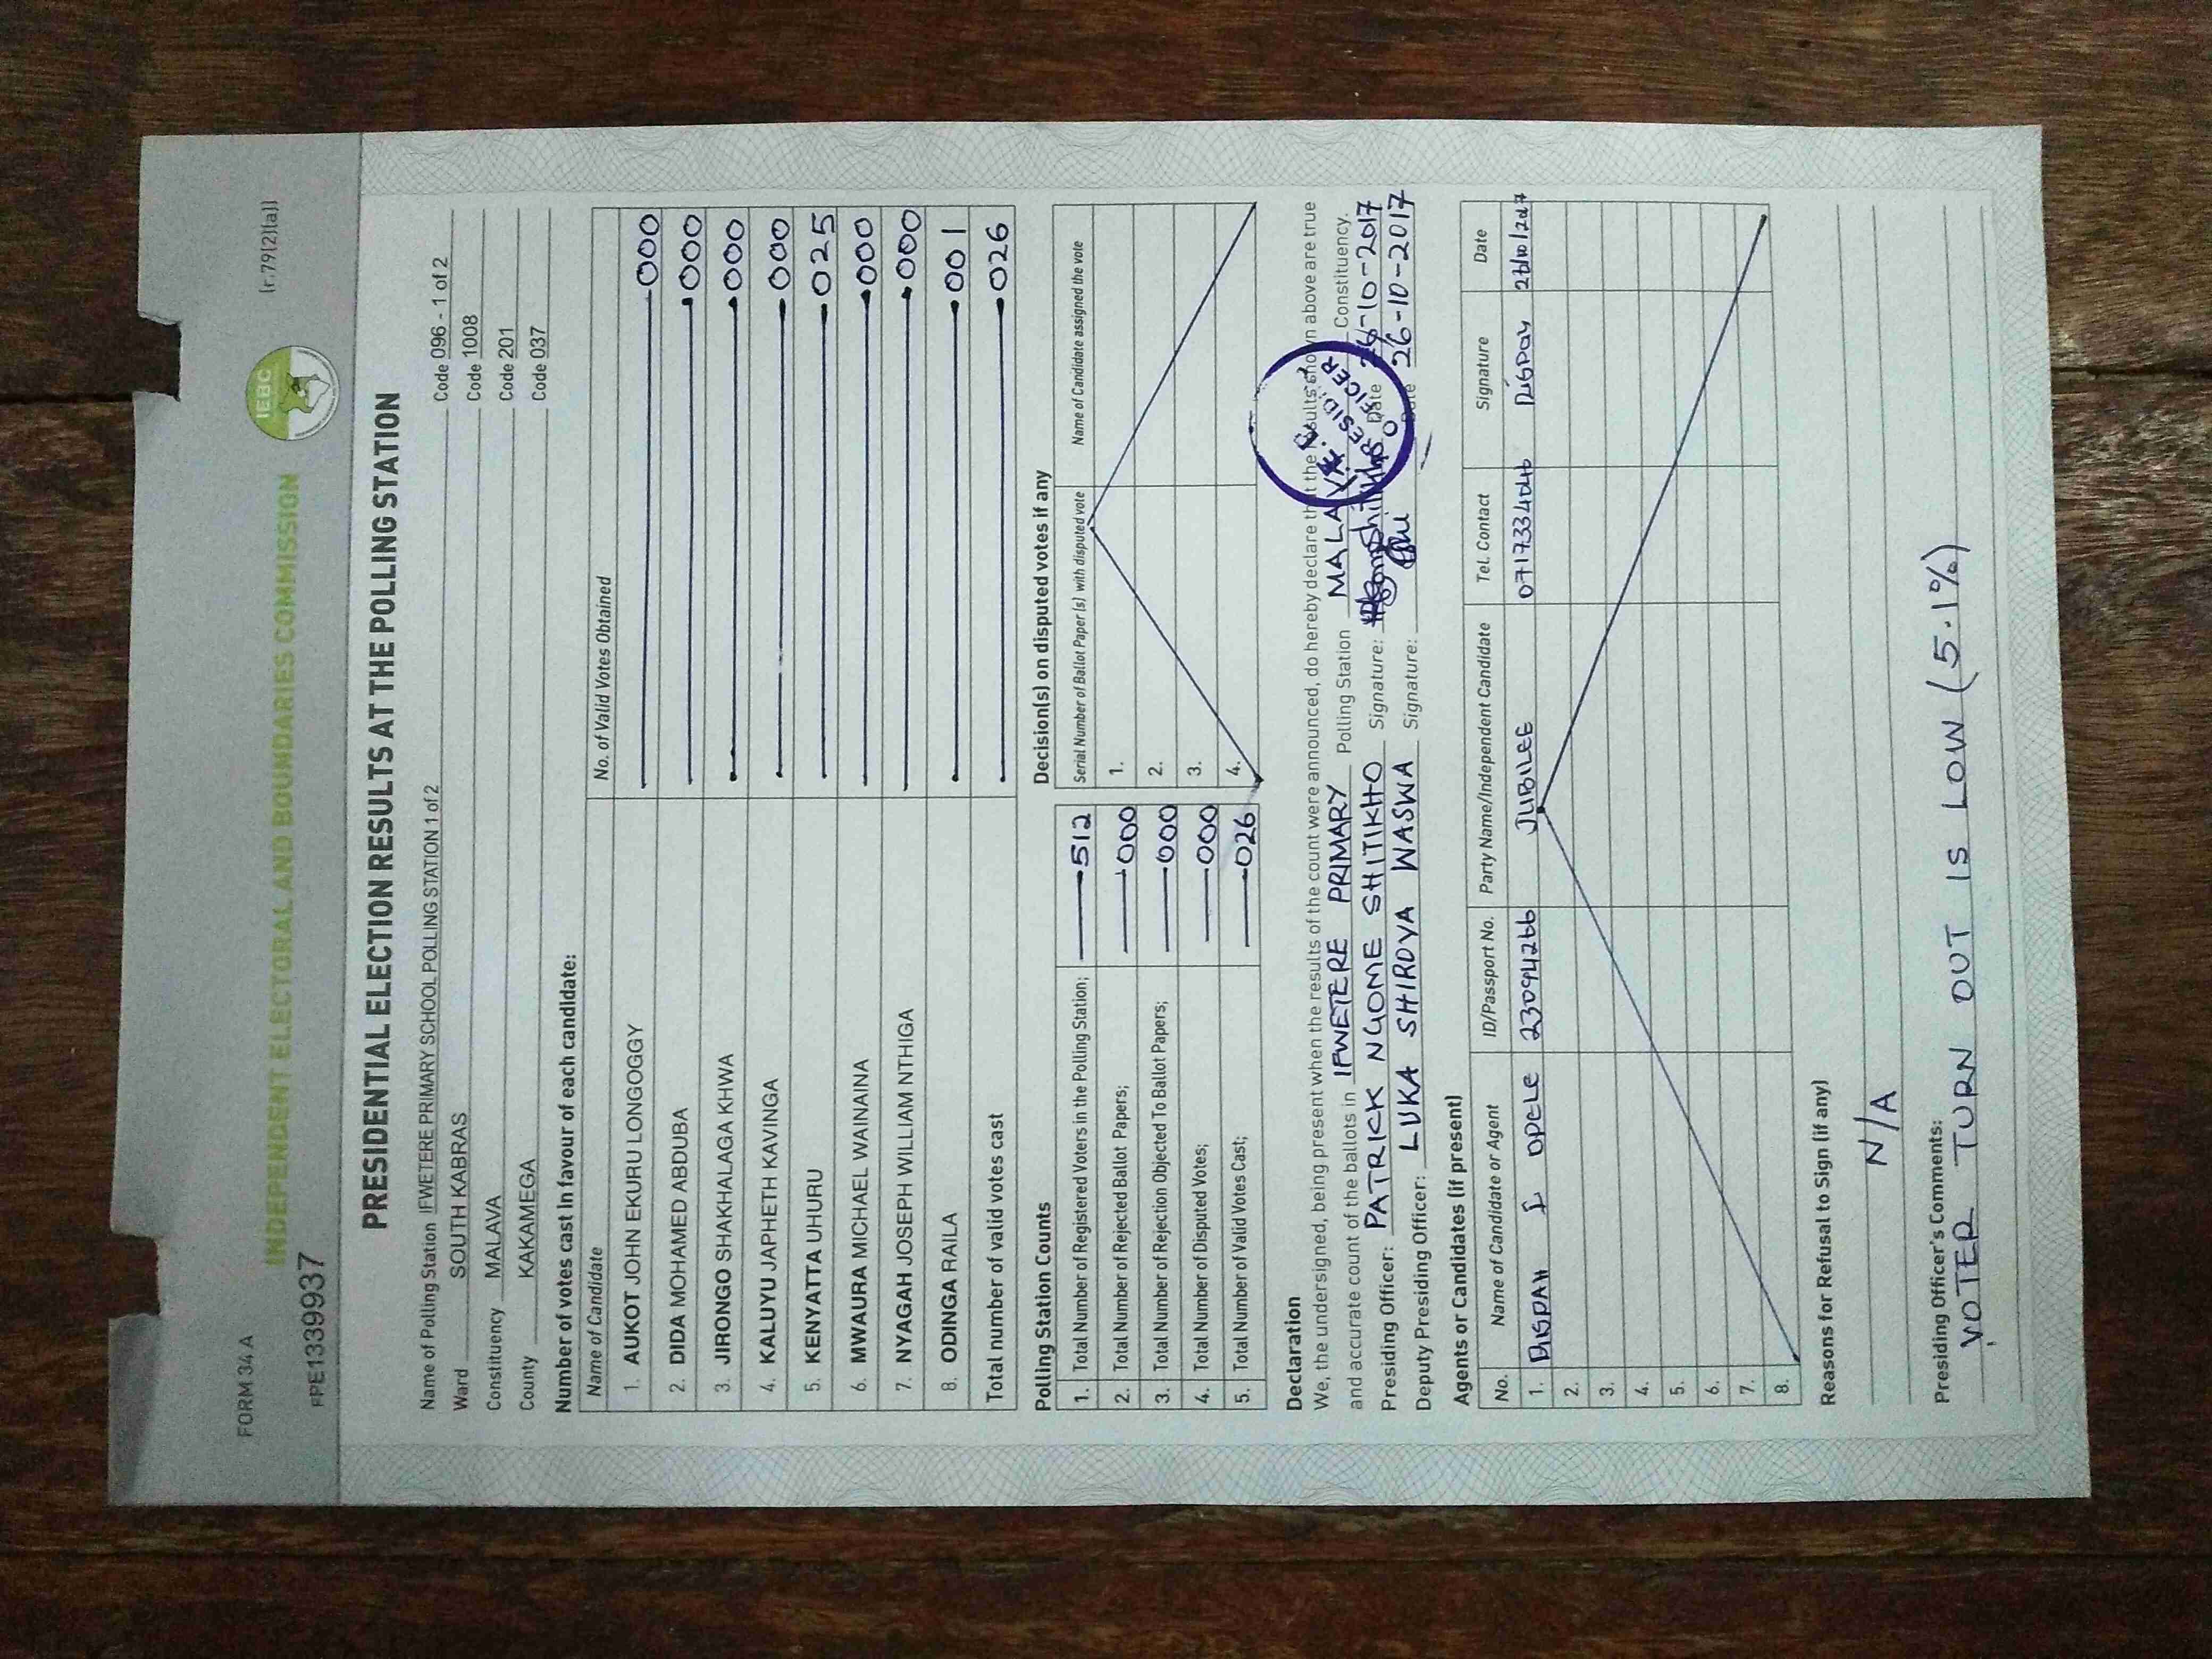 FORM 34 A
[r.79(2)(a)]
IEBC
INDEPENDENT ELECTORAL AND BOUNDARIES COMMISSION
PPE1339937
PRESIDENTIAL ELECTION RESULTS AT THE POLLING STATION
Name of Polling Station IFWETERE PRIMARY SCHOOL POLLING STATION 1 of 2 Code 096 - 1 of 2
Ward SOUTH KABRAS Code 1008
Constituency MALAVA Code 201
County KAKAMEGA Code 037
Number of votes cast in favour of each candidate:
Name of Candidate No. of Valid Votes Obtained
1. AUKOT JOHN EKURU LONGOGGY 000
2. DIDA MOHAMED ABDUBA 000
3. JIRONGO SHAKHALAGA KHWA 000
4. KALUYU JAPHETH KAVINGA 000
5. KENYATTA UHURU 025
6. MWAURA MICHAEL WAINAINA 000
7. NYAGAH JOSEPH WILLIAM NTHIGA 000
8. ODINGA RAILA 001
Total number of valid votes cast 026
Polling Station Counts
1. Total Number of Registered Voters in the Polling Station; 512
2. Total Number of Rejected Ballot Papers; 000
3. Total Number of Rejection Objected To Ballot Papers; 000
4. Total Number of Disputed Votes; 000
5. Total Number of Valid Votes Cast; 026
Decision(s) on disputed votes if any
Serial Number of Ballot Paper (s) with disputed vote Name of Candidate assigned the vote
1.
2.
3.
4.
Declaration
We, the undersigned, being present when the results of the count were announced, do hereby declare that the results shown above are true
and accurate count of the ballots in IFWETERE PRIMARY Polling Station MALAVA Constituency.
Presiding Officer: PATRICK NGOME SHITIKHO Signature: Date 26-10-2017
Deputy Presiding Officer: LUKA SHIROYA WASWA Signature: Date 26-10-2017
PRESIDING OFFICER
Agents or Candidates (if present)
No. Name of Candidate or Agent ID/Passport No. Party Name/Independent Candidate Tel. Contact Signature Date
1. DISPAH I OPELE 23094266 JUBILEE Dispay 26/10/2017
2.
3.
4.
5.
6.
7.
8.
Reasons for Refusal to Sign (if any)
N/A
Presiding Officer's Comments:
VOTER TURN OUT IS LOW (5.1%)